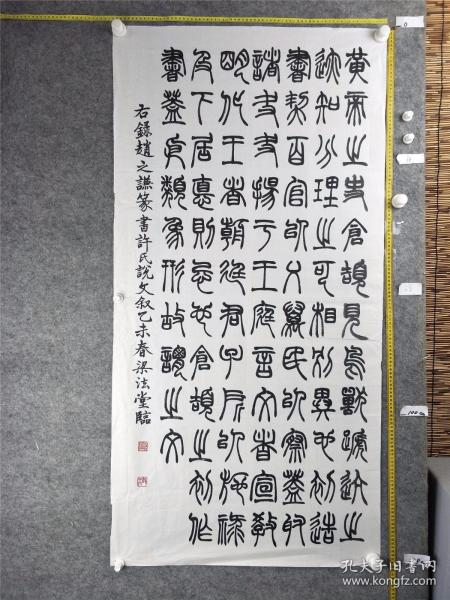 黄帝之史倉頡見鳥獸蹏迒之
迹知分理之可相別異也初造
書契百官以乂萬民以察蓋取
諸夬夬揚于王庭言文者宣教
明化王者朝廷君子所以施祿
及下居悳則忌也倉頡之初作
書蓋依類象形故謂之文
右錄趙之謙篆書許氏說文叙乙未春梁法堂臨
0
100cm
孔夫子旧书网
www.kongfz.com